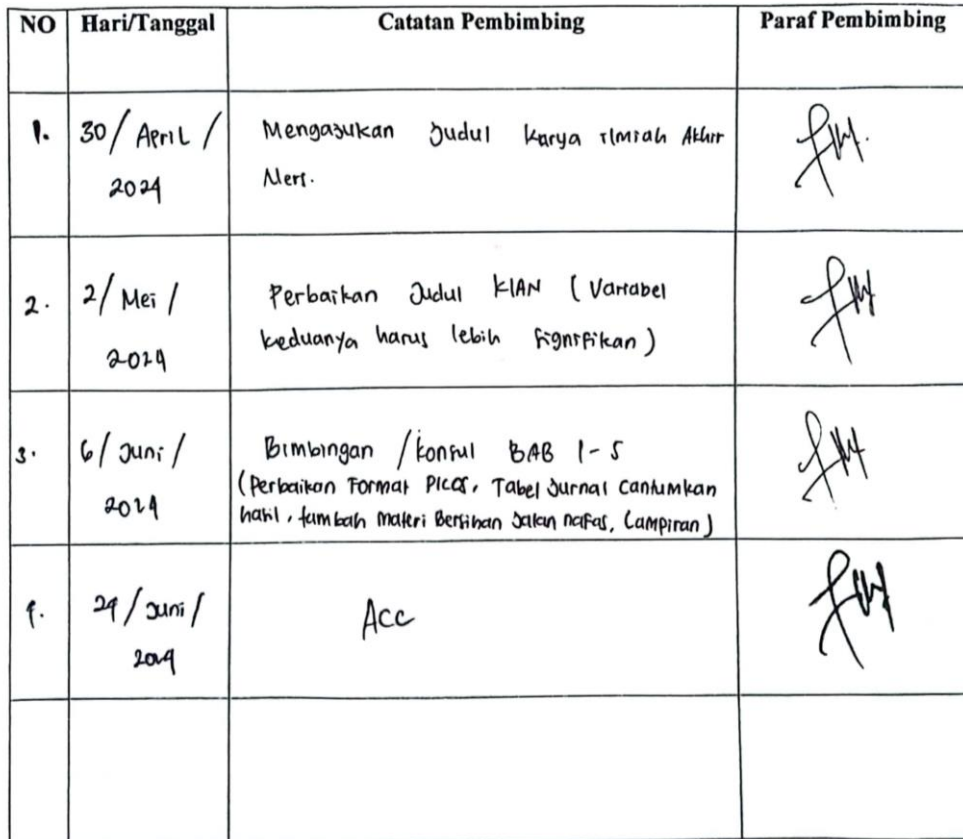 NO Hari/Tanggal Catatan Pembimbing Paraf Pembimbing
1. 30/ April / Mengajukan Judul Karya Ilmiah Akhir
2024 Ners.
2. 2/ Mei / Perbaikan Judul KIAN ( Variabel
2024 keduanya harus lebih signifikan )
3. 6/ Juni / Bimbingan / konsul BAB 1-5
2024 (Perbaikan Format PICOS, Tabel Jurnal Cantumkan
hasil, tambah materi Bersihan Jalan nafas, Lampiran )
4. 24 / Juni / Acc
2024